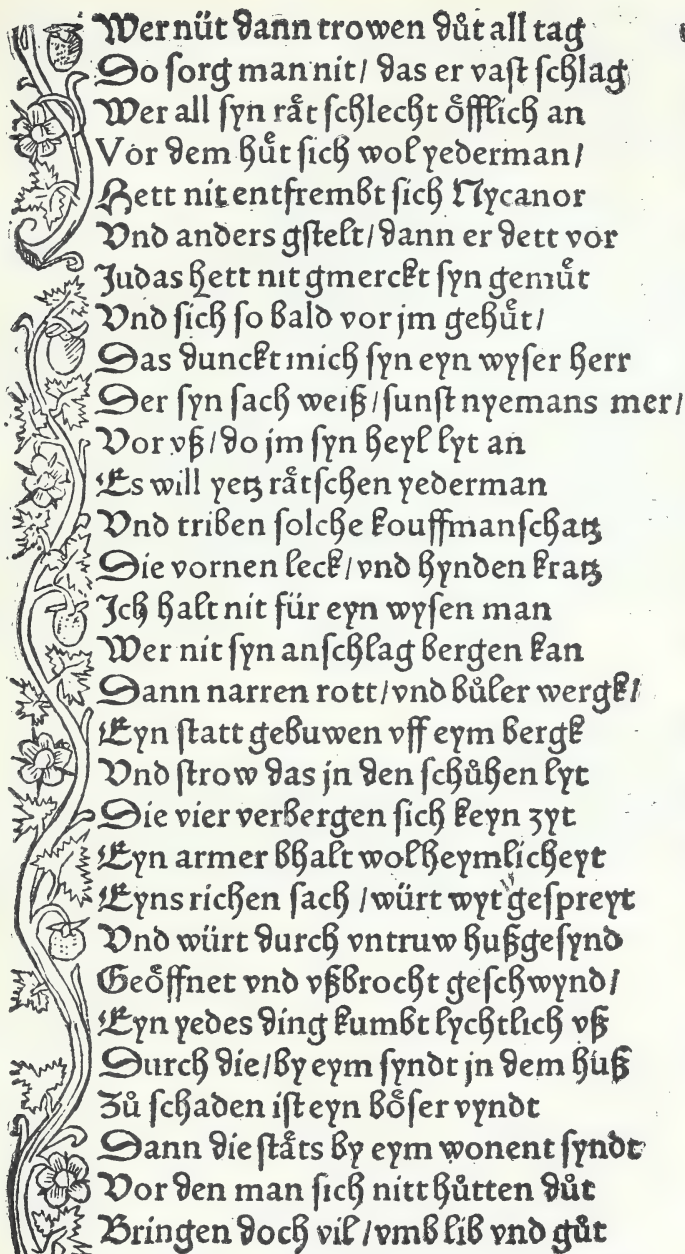 Wer nüt dann trowen důt all tag
So sorg man nit / das er vast schlag
Wer all syn rät schlecht öfflich an
Vor dem hüt sich wol yederman /
Hett nit entfrembt sich Nycanor
Vnd anders gstelt / dann er dett vor
Judas hett nit gmerckt syn gemüt
Vnd sich so bald vor jm gehüt /
Das dunckt mich syn eyn wyser herr
Der syn sach weiß / sunst nyemans mer /
Vor vß / do jm syn heyl lyt an
Es will yetz rätschen yederman
Vnd triben solche kouffmanschatz
Die vornen leck / vnd hynden kratz
Ich halt nit für eyn wysen man
Wer nit syn anschlag bergen kan
Dann narren rott / vnd bůler wergk /
Eyn statt gebuwen vff eym bergk
Vnd strow das jn den schůhen lyt
Die vier verbergen sich keyn zyt
Eyn armer bhalt wol heymlicheyt
Eyns richen sach / würt wyt gespreyt
Vnd würt durch vntruw hußgesynd
Geöffnet vnd vßbrocht geschwynd /
Eyn yedes ding kumbt lychtlich vß
Durch die / by eym syndt jn dem huß
Zů schaden ist eyn böser vyndt
Dann die stäts by eym wonent syndt
Vor den man sich nitt hütten důt
Bringen doch vil / vmb lib vnd gůt